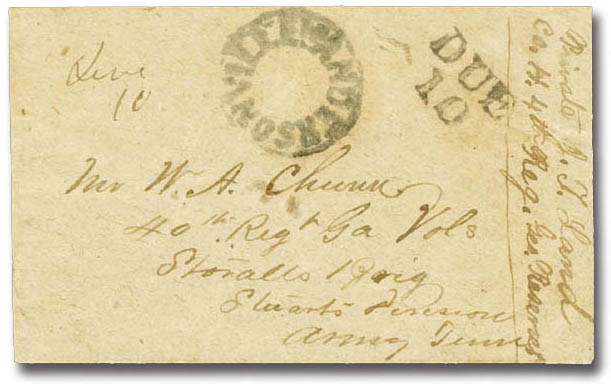 Due
10
ANDERSONVILLE
DUE
10
Mr W. A. Chunn
40th Regt Ga Vols
Stovalls Brig
Stuarts Division
Army Tenn
Private J. T. Land
Co. H, 4th Reg. Geo. Reserves